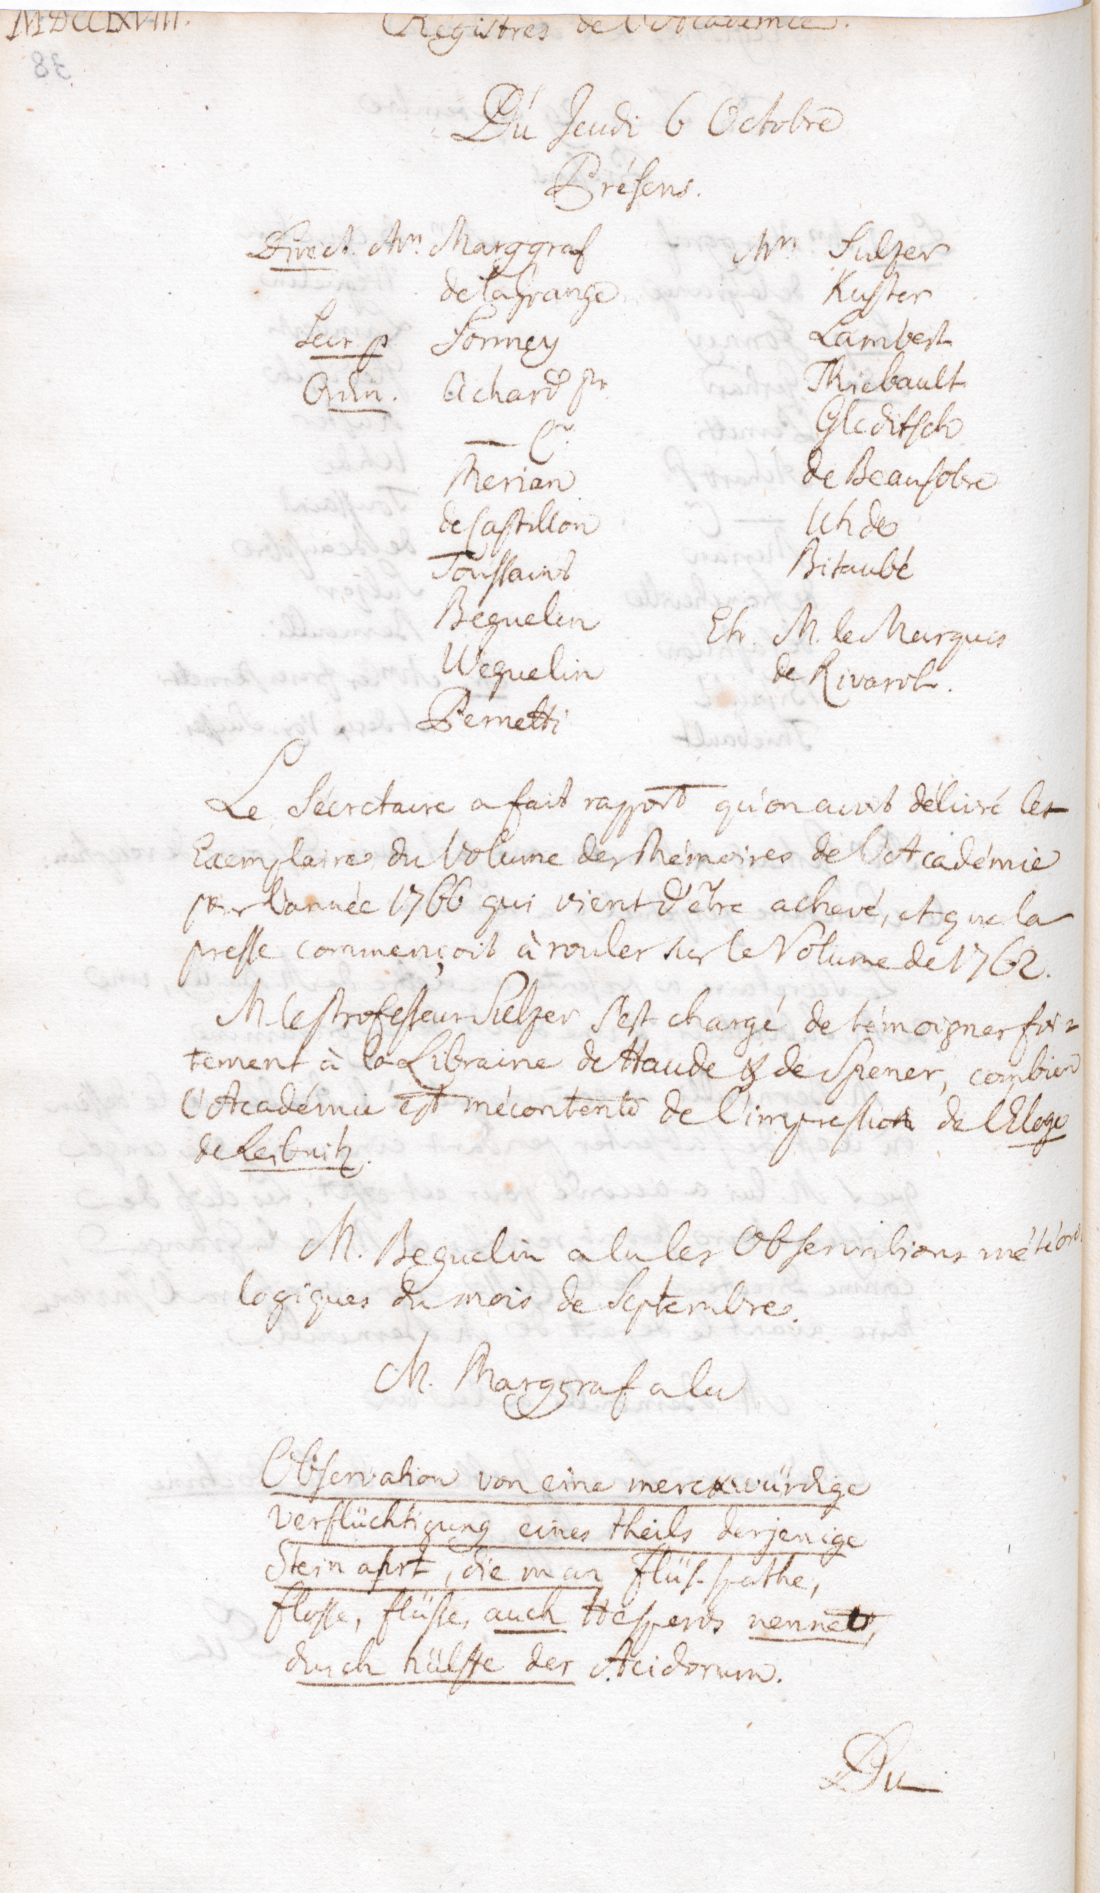 MDCCLXVIII.
Registres de l'Académie.
Du Jeudi 6 Octobre
Présens.
Direct. Mrs. Marggraf
de la Grange
Secr. p. Formey
Ordin. Achard pr.
— C.
Merian
de Castillon
Toussaint
Beguelin
Weguelin
Pernetti
Mrs Sulzer
Kuster
Lambert
Thiebault
Gleditsch
de Beausobre
Uhde
Bitaubé
Etr. M. le Marquis
de Rivarol.
Le Sécretaire a fait rapport qu'on avoit délivré les
Exemplaires du Volume des Mémoires de l'Académie
pour l'année 1766 qui vient d'être achevé, et que la
presse commençoit à rouler sur le Volume de 1762.
M. le Professeur Sulzer s'est chargé de témoigner for-
tement à la Librairie de Haude & de Spener, combien
l'Académie est mécontente de l'impression de l'Eloge
de Leibnitz.
M. Beguelin a lu les Observations météoro
logiques du mois de Septembre.
M. Marggraf a lu
Observation von eine merckwürdige
verflüchtigung eines theils derjenige
Stein ahrt, die man flüs-spathe,
flosse, flüsse, auch Hesperos nennett,
durch hülffe der Acidorum.
Du